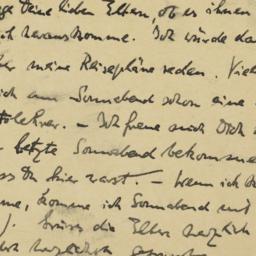 Deine lieben Eltern, ob es ihnen
ich herauskomme. Ich würde da
über meine Reisepläne reden. Viel
ich am Sonnabend schon eine
. – Ich freue mich Dich
letzte Sonnabend bekommen
Du hier warst. – Wenn ich
komme ich Sonnabend und
). Grüsse die Eltern herzlich
herzlichst